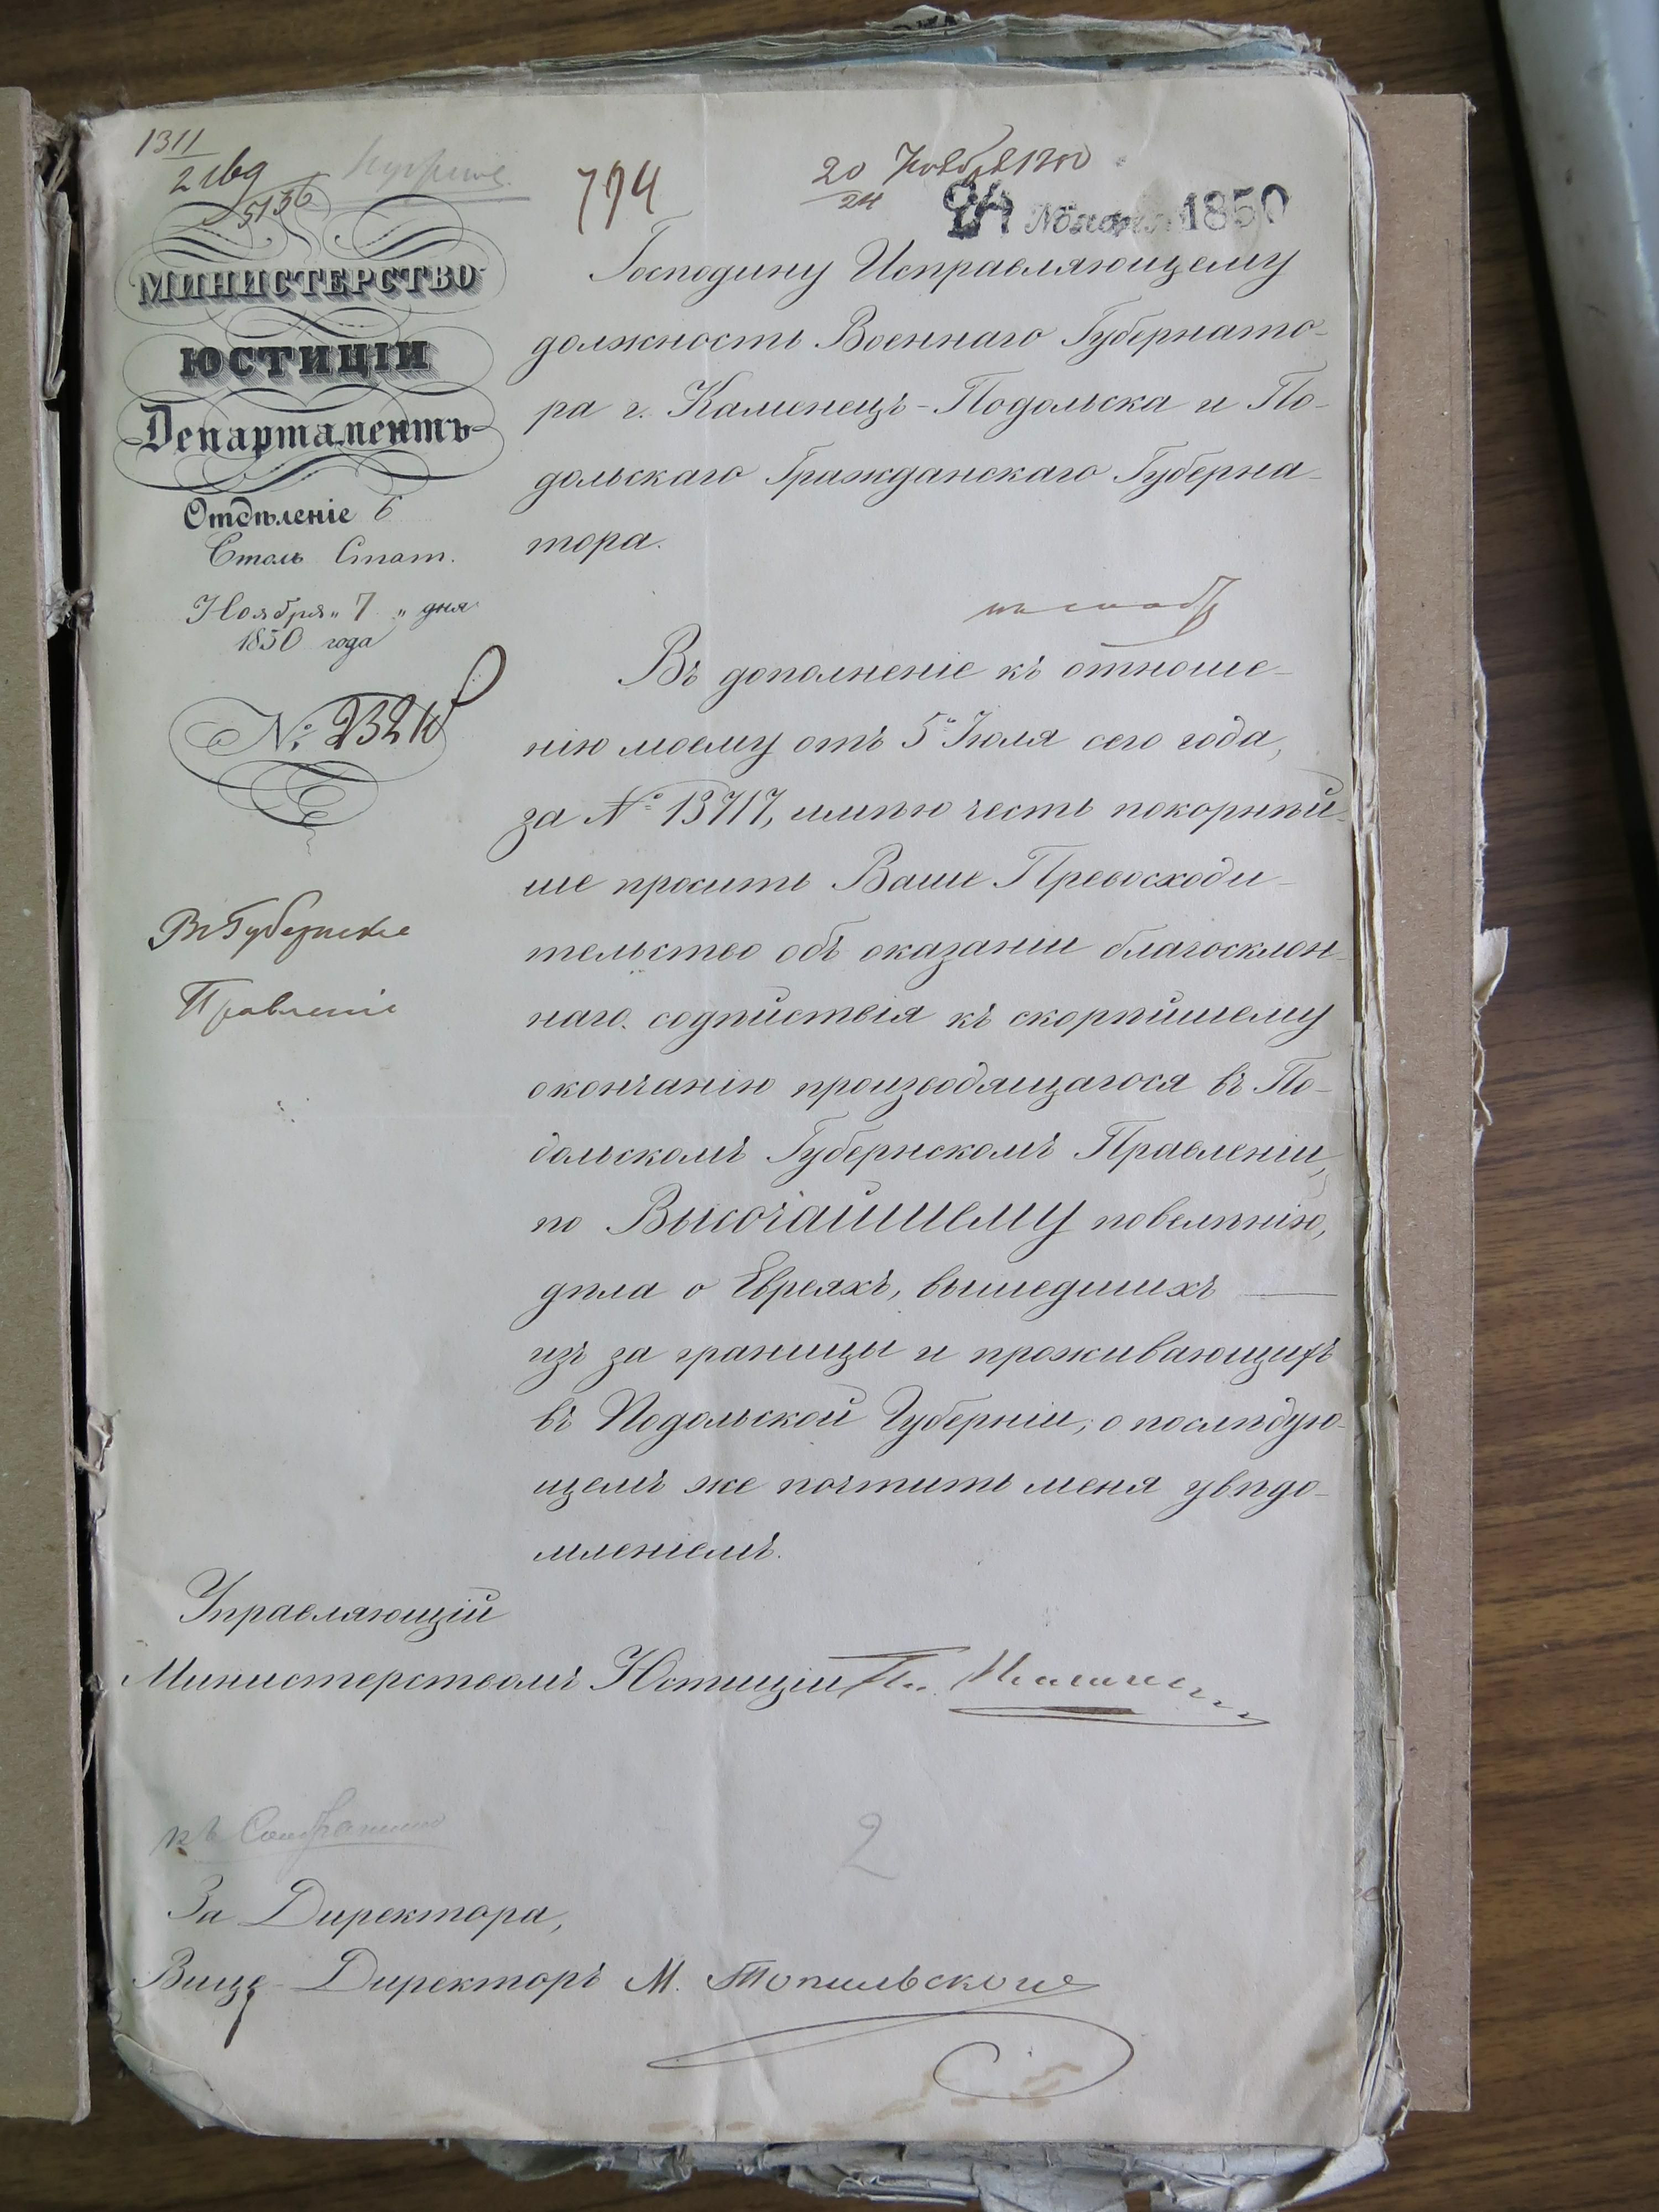 1311
2 ... 
5136
794
20 Ноября 1850
24
24 Ноября 1850
МИНИСТЕРСТВО
ЮСТИЦІИ
Департаментъ
Отдѣленіе 6
Столъ Стат.
Ноября „ 7 „ дня
1850 года
№
Въ Губернское
Правленіе
Господину Исправляющему
должность Военнаго Губернато-
ра г. Каменецъ-Подольска и По-
дольскаго Гражданскаго Губерна-
тора.
Въ дополненіе къ отноше-
нію моему отъ 5го Іюля сего года,
за № 13717, имѣю честь покорнѣй-
ше просить Ваше Превосходи-
тельство объ оказаніи благосклон-
наго содѣйствія къ скорѣйшему
окончанію производящагося въ По-
дольскомъ Губернскомъ Правленіи,
по Высочайшему повелѣнію,
дѣла о Евреяхъ, вышедшихъ
изъ за границы и проживающихъ
въ Подольской Губерніи; о послѣдую-
щемъ же почтить меня увѣдо-
мленіемъ.
Управляющій
Министерствомъ Юстиціи
2
За Директора,
Вице-Директоръ М. Топильскій